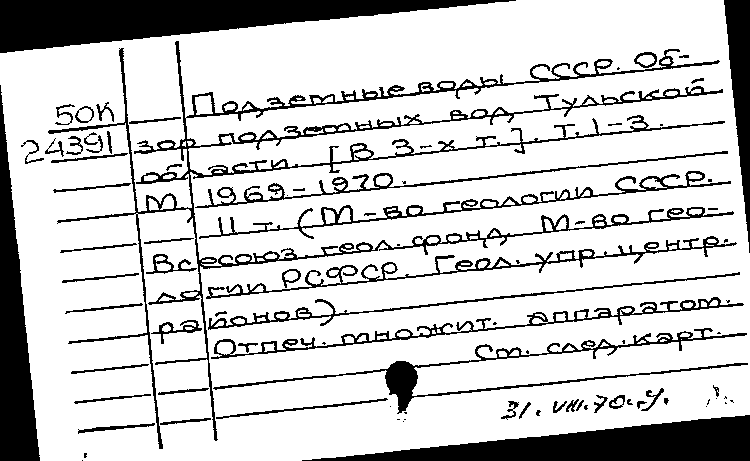 50К
24391
Подземные воды СССР. Об-
зор подземных вод Тульской
области. [В 3-х т.]. Т. 1-3.
М., 1969-1970.
11 т. (М-во геологии СССР.
Всесоюз. геол. фонд. М-во гео-
логии РСФСР. Геол. упр. центр.
районов).
Отпеч. множит. аппаратом.
См. след. карт.
31.VIII.70.